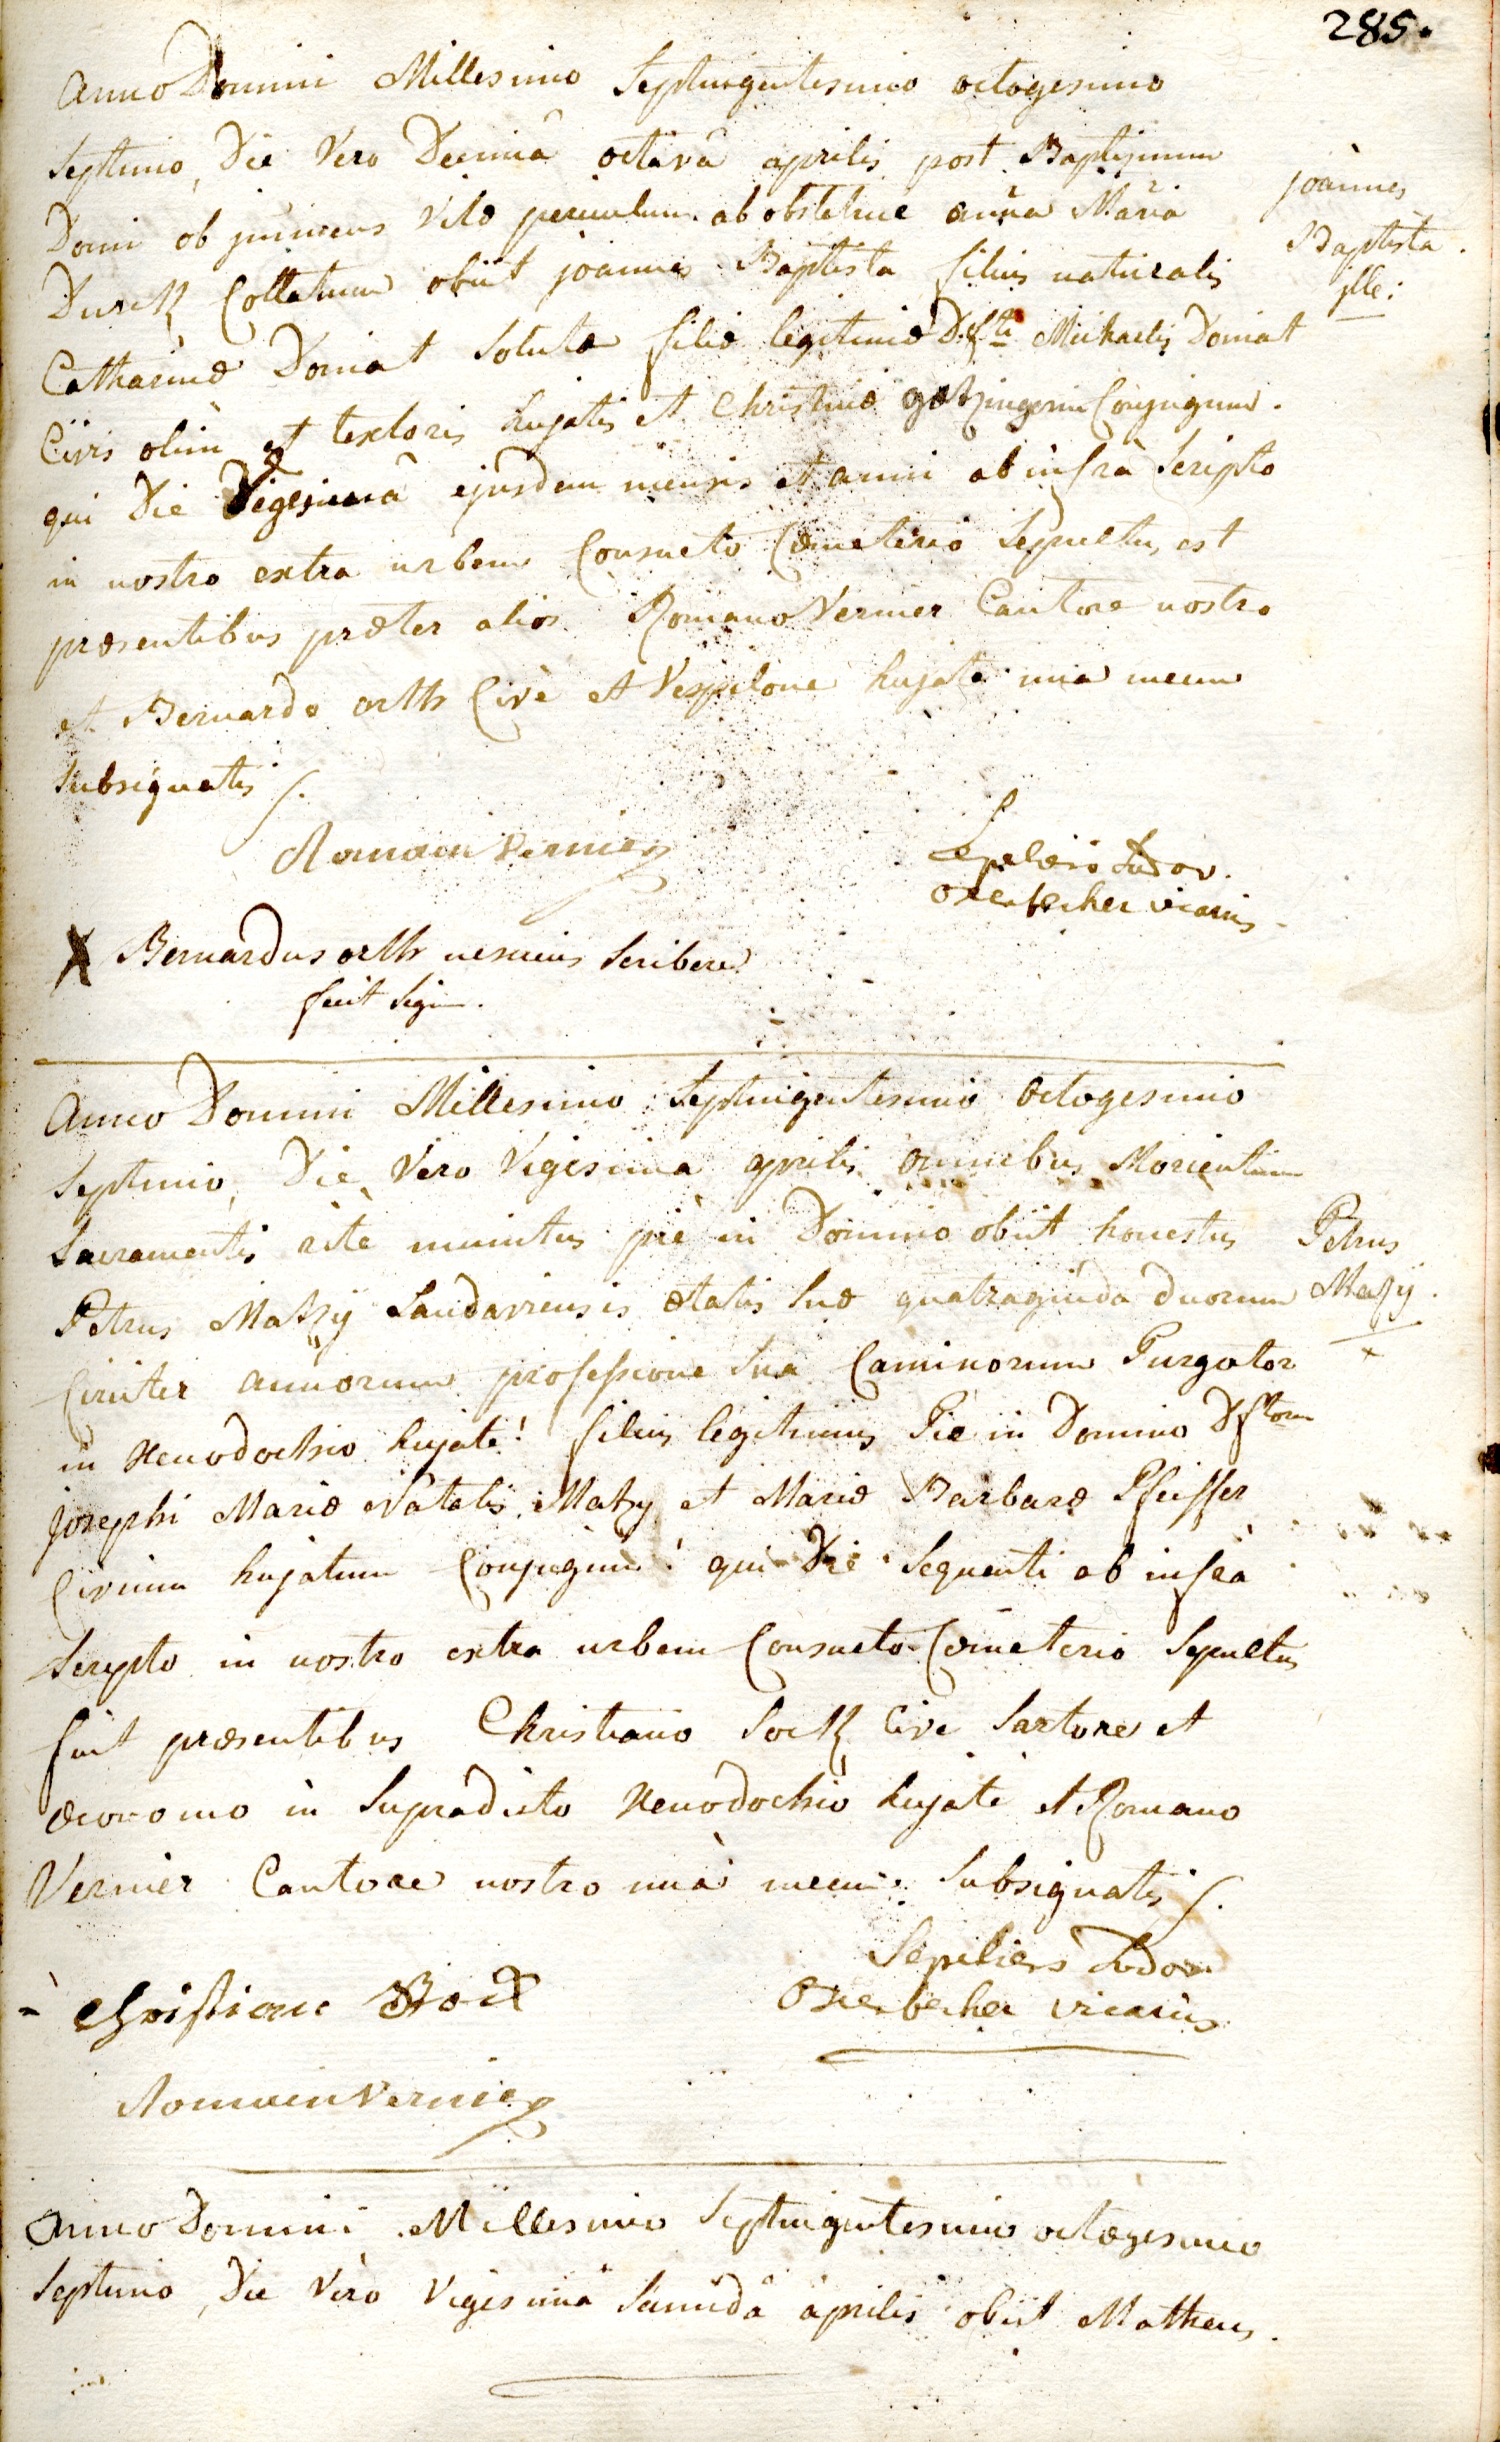 285.
Anno Domini Millesimo Septingentesimo octogesimo
Septimo, Die Vero Decimâ octavâ aprilis post Baptismum
Domi ob juminens Vitæ periculum ab obstetrice anna Maria
Collatum obiit joannes Baptista filius naturalis
joannes
Baptista
jlle:
Catharinæ Doniat Solutæ filiæ legitimæ Dfti Michaelis Doniat
Civis olim et textoris hujatis et Christinæ Conjugum.
qui Die Vigesimâ ejusdem mensis et anni ab infrà Scripto
in nostro extra urbem Consueto Cœmeterio Sepultus est
præsentibus præter alios Romano Vernier Cantore nostro
et Bernardo orth Cive et Vespilone hujate una mecum
Subsignatis
Romain Vernier
vicarius
X Bernardus orth nescius Scribere
fecit Signum.
Anno Domini Millesimo Septingentesimo Octogesimo
Septimo, Die Vero Vigesima aprilis omnibus Morientium
Sacramentis ritè munitus piè in Domino obiit honestus
Petrus
Petrus Matzy Landaviensis ætatis Suæ quatraginda duorum
Matzy.
Circiter annorum professione Sua Caminorum Purgator
in Xenodochio hujate! filius legitimus Pie in Domino Dftorum
josephi Mariæ Natalis Matzy et Mariæ Barbaræ Pfeiffer
Civium hujatum Conjugum! qui Die Sequenti ab infrà
Scripto in nostro extra urbem Consueto Cœmeterio Sepultus
fuit præsentibus Christiano Cive Sartore et
œconomo in Supradicto Xenodochio hujate et Romano
Vernier Cantore nostro unà mecum Subsignatis
vicarius
Christian
Romain Vernier
Anno Domini Millesimo Septingentesimo octogesimo
Septimo, Die Vero Vigesimâ Secunda aprilis obiit Matheus.